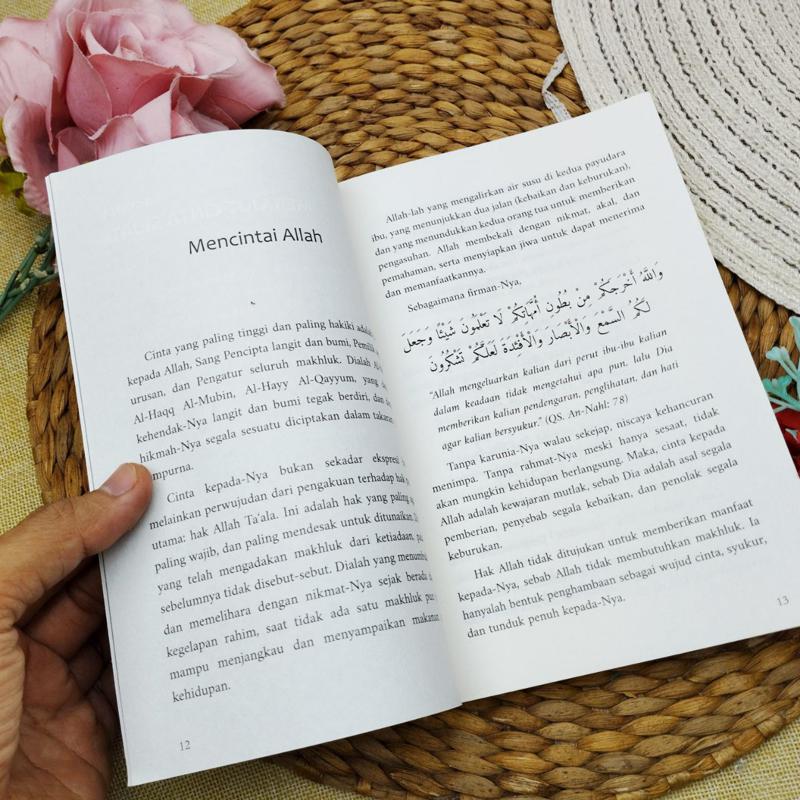 Mencintai Allah
Cinta yang paling tinggi dan paling hakiki
kepada Allah, Sang Pencipta langit dan bumi,
urusan, dan Pengatur seluruh makhluk. Dialah
Al-Haqq Al-Mubin, Al-Hayy Al-Qayyum, yang
kehendak-Nya langit dan bumi tegak berdiri, dan
hikmah-Nya segala sesuatu diciptakan dalam
mpurna.
Cinta kepada-Nya bukan sekadar ekspresi
melainkan perwujudan dari pengakuan terhadap
utama: hak Allah Ta'ala. Ini adalah hak yang paling
paling wajib, dan paling mendesak untuk ditunaikan.
yang telah mengadakan makhluk dari ketiadaan,
sebelumnya tidak disebut-sebut. Dialah yang
dan memelihara dengan nikmat-Nya sejak berada
kegelapan rahim, saat tidak ada satu makhluk
mampu menjangkau dan menyampaikan
kehidupan.
12
Allah-lah yang mengalirkan air susu di kedua payudara
ibu, yang menunjukkan dua jalan (kebaikan dan keburukan),
dan yang menundukkan kedua orang tua untuk memberikan
pengasuhan. Allah membekali dengan nikmat, akal, dan
pemahaman, serta menyiapkan jiwa untuk dapat menerima
dan memanfaatkannya.
Sebagaimana firman-Nya,
وَاللَّهُ أَخْرَجَكُمْ مِنْ بُطُونِ أُمَّهَاتِكُمْ لَا تَعْلَمُونَ شَيْئًا وَجَعَلَ
لَكُمُ السَّمْعَ وَالْأَبْصَارَ وَالْأَفْئِدَةَ لَعَلَّكُمْ تَشْكُرُونَ
"Allah mengeluarkan kalian dari perut ibu-ibu kalian
dalam keadaan tidak mengetahui apa pun, lalu Dia
memberikan kalian pendengaran, penglihatan, dan hati
agar kalian bersyukur." (QS. An-Nahl: 78)
Tanpa karunia-Nya walau sekejap, niscaya kehancuran
menimpa. Tanpa rahmat-Nya meski hanya sesaat, tidak
akan mungkin kehidupan berlangsung. Maka, cinta kepada
Allah adalah kewajaran mutlak, sebab Dia adalah asal segala
pemberian, penyebab segala kebaikan, dan penolak segala
keburukan.
Hak Allah tidak ditujukan untuk memberikan manfaat
kepada-Nya, sebab Allah tidak membutuhkan makhluk. Ia
hanyalah bentuk penghambaan sebagai wujud cinta, syukur,
dan tunduk penuh kepada-Nya.
13